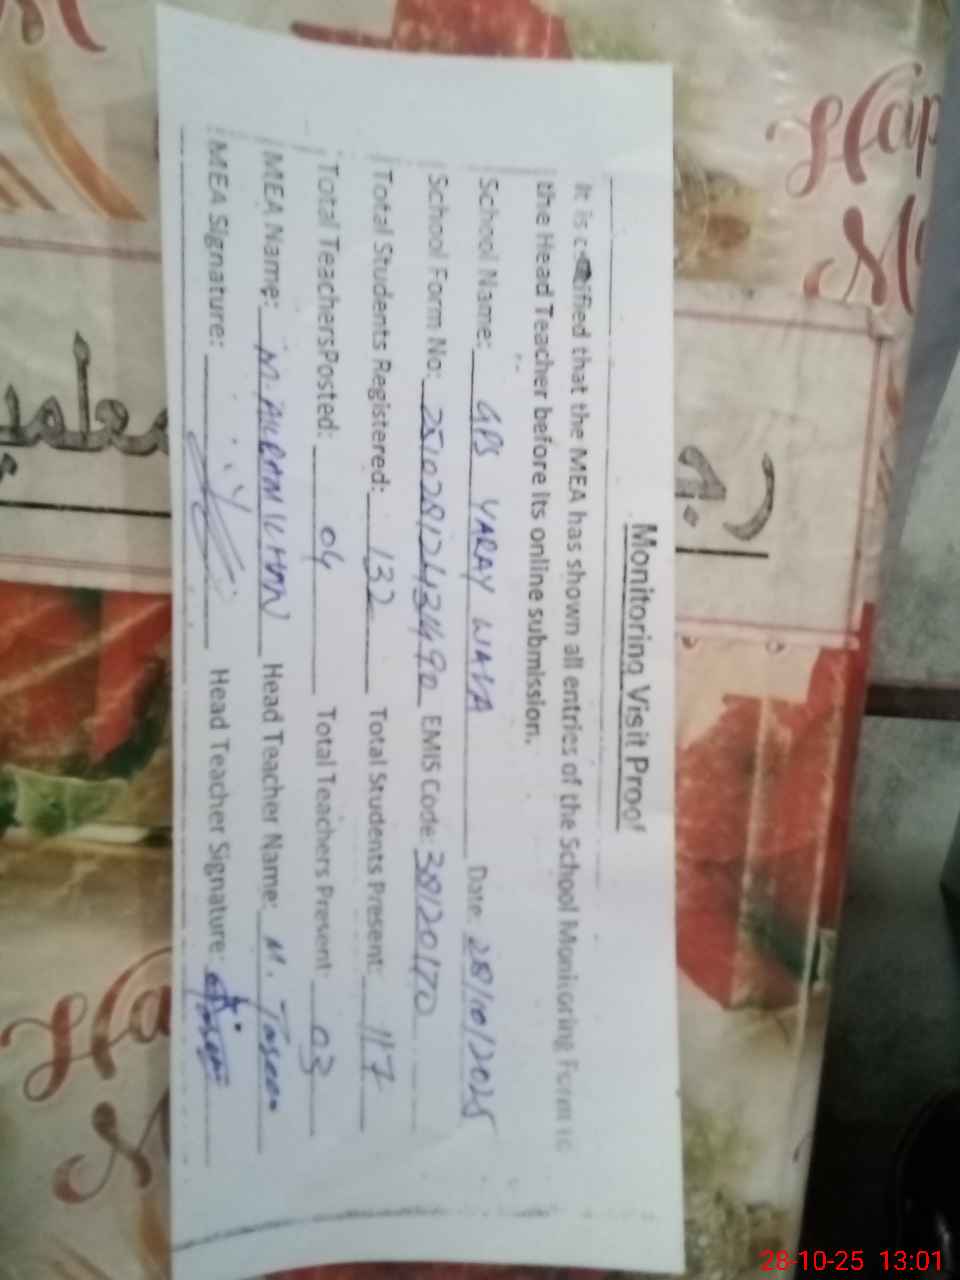 Monitoring Visit Proof
It is certified that the MEA has shown all entries of the School Monitoring Form to
the Head Teacher before its online submission.
School Name: GPS YARAY WALA Date: 28/10/2025
School Form No: EMIS Code: 38120170
Total Students Registered: 132 Total Students Present: 117
Total TeachersPosted: 04 Total Teachers Present: 03
MEA Name: M. AKRAM KHAN Head Teacher Name: M.
MEA Signature: Head Teacher Signature:
28-10-25 13:01